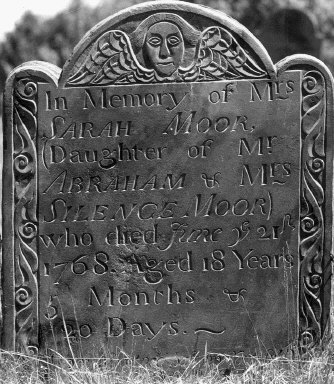 In Memory of Mrs
SARAH MOOR,
(Daughter of Mr
ABRAHAM & Mrs
SILENCE MOOR)
who died June ye 21st
1768. Aged 18 Years
5 Months &
20 Days. ~